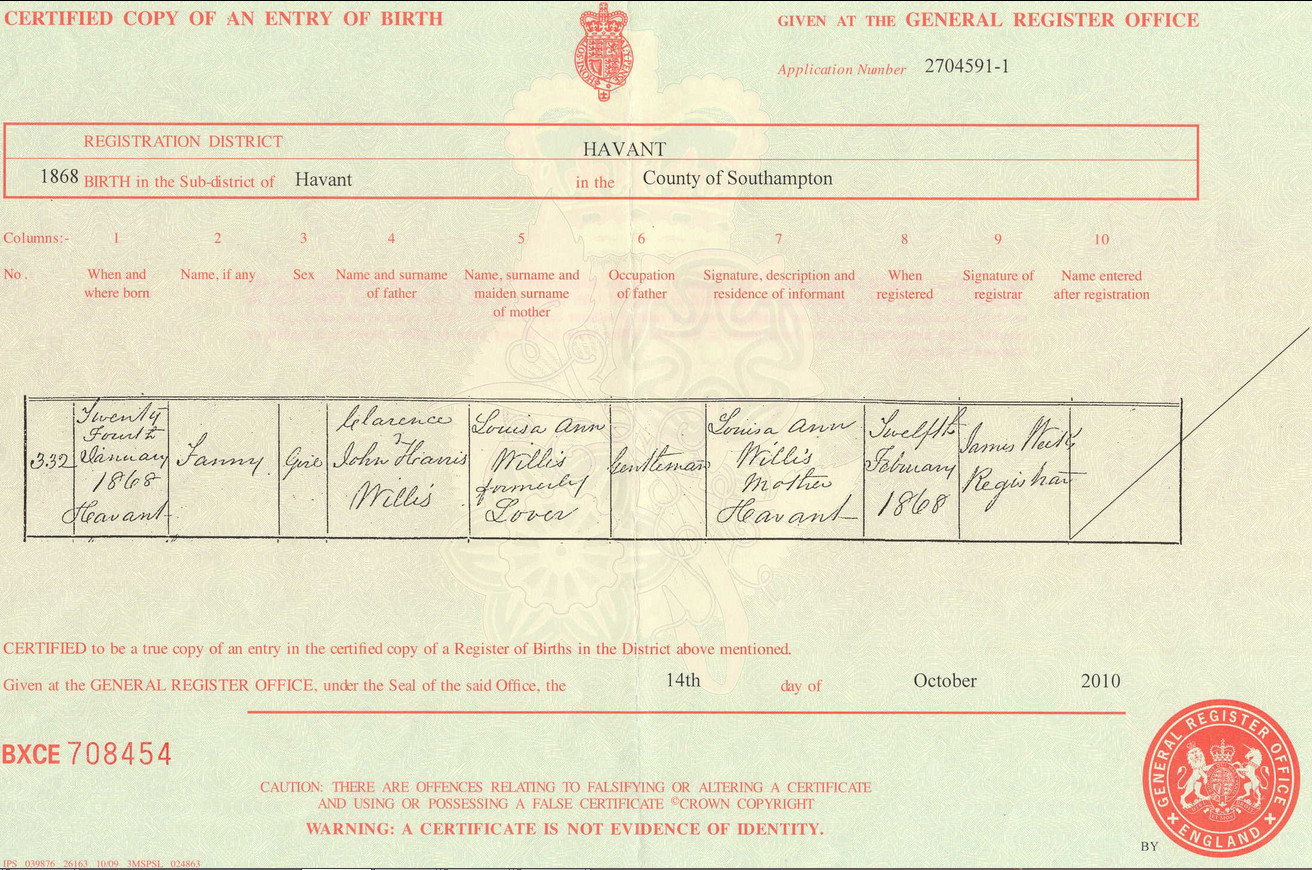 CERTIFIED COPY OF AN ENTRY OF BIRTH
GIVEN AT THE GENERAL REGISTER OFFICE
Application Number 2704591-1
REGISTRATION DISTRICT HAVANT
1868 BIRTH in the Sub-district of Havant in the County of Southampton
Columns:- 1 2 3 4 5 6 7 8 9 10
No. When and where born
Name, if any
Sex
Name and surname of father
Name, surname and maiden surname of mother
Occupation of father
Signature, description and residence of informant
When registered
Signature of registrar
Name entered after registration
332
Twenty
Fourth
January
1868
Havant
Fanny
Girl
Clarence
John Harris
Willis
Louisa Ann
Willis
formerly
Lover
Gentleman
Louisa Ann
Willis
Mother
Havant
Twelfth
February
1868
James
Registrar
CERTIFIED to be a true copy of an entry in the certified copy of a Register of Births in the District above mentioned.
Given at the GENERAL REGISTER OFFICE, under the Seal of the said Office, the 14th day of October 2010
BXCE 708454
CAUTION: THERE ARE OFFENCES RELATING TO FALSIFYING OR ALTERING A CERTIFICATE
AND USING OR POSSESSING A FALSE CERTIFICATE ©CROWN COPYRIGHT
WARNING: A CERTIFICATE IS NOT EVIDENCE OF IDENTITY.
GENERAL REGISTER OFFICE
ENGLAND
BY
IPS 039876 26163 10/09 3MSPSL 024863